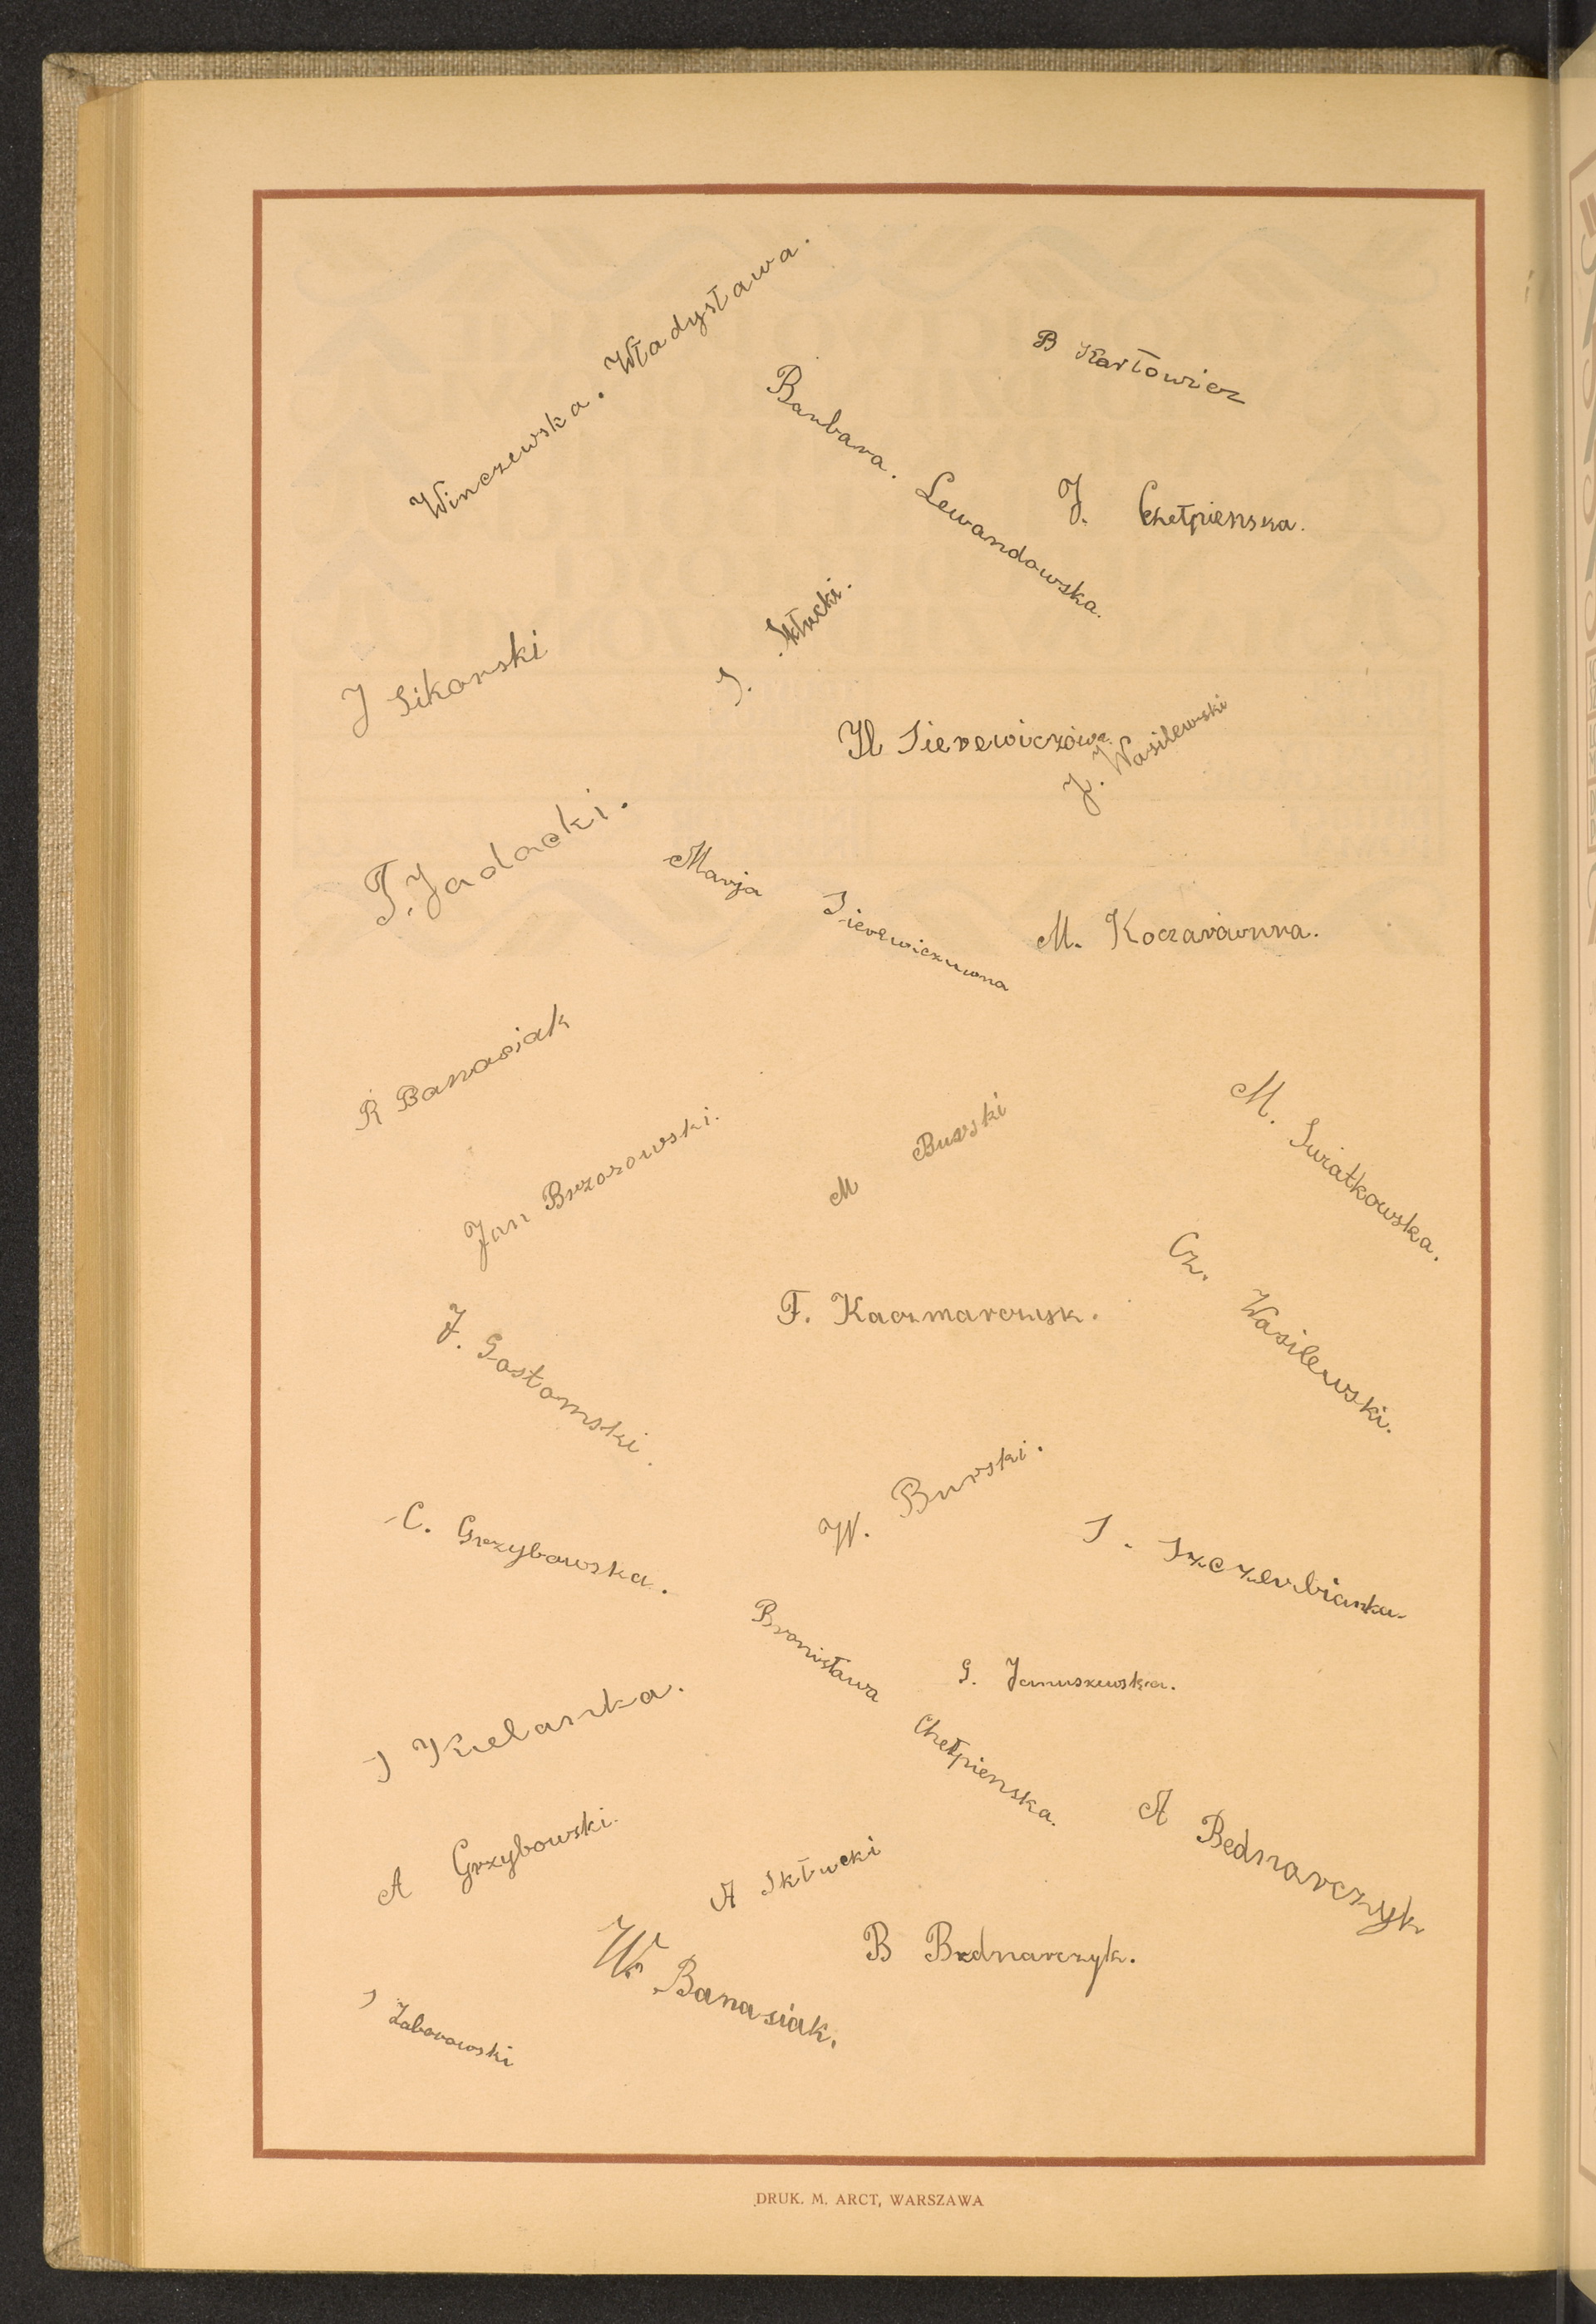 Winczewska. Władysława.
B Karłowicz
Barbara. Lewandowska.
J. Chełpienska.
S. Skłucki.
J Sikorski
H Sierewiczówa.
J. Wasilewski
T. Jadacki.
Marja Sierewiczuwna
M. Koczarówna.
R Banasiak
Jan Brzozowski.
M Burski
M. Swiatkowska.
Cz. Wasilewski.
F. Kaczmarczyk.
J. Gostomski.
W. Burski.
C. Grzybowska.
S. Szczerbianka.
Bronisława Chełpienska.
G. Januszewska.
J Kielanka.
A Bednarczyk
A Grzybowski.
A Skłucki
B Bednarczyk.
W. Banasiak.
J Zaborowski
DRUK. M. ARCT, WARSZAWA